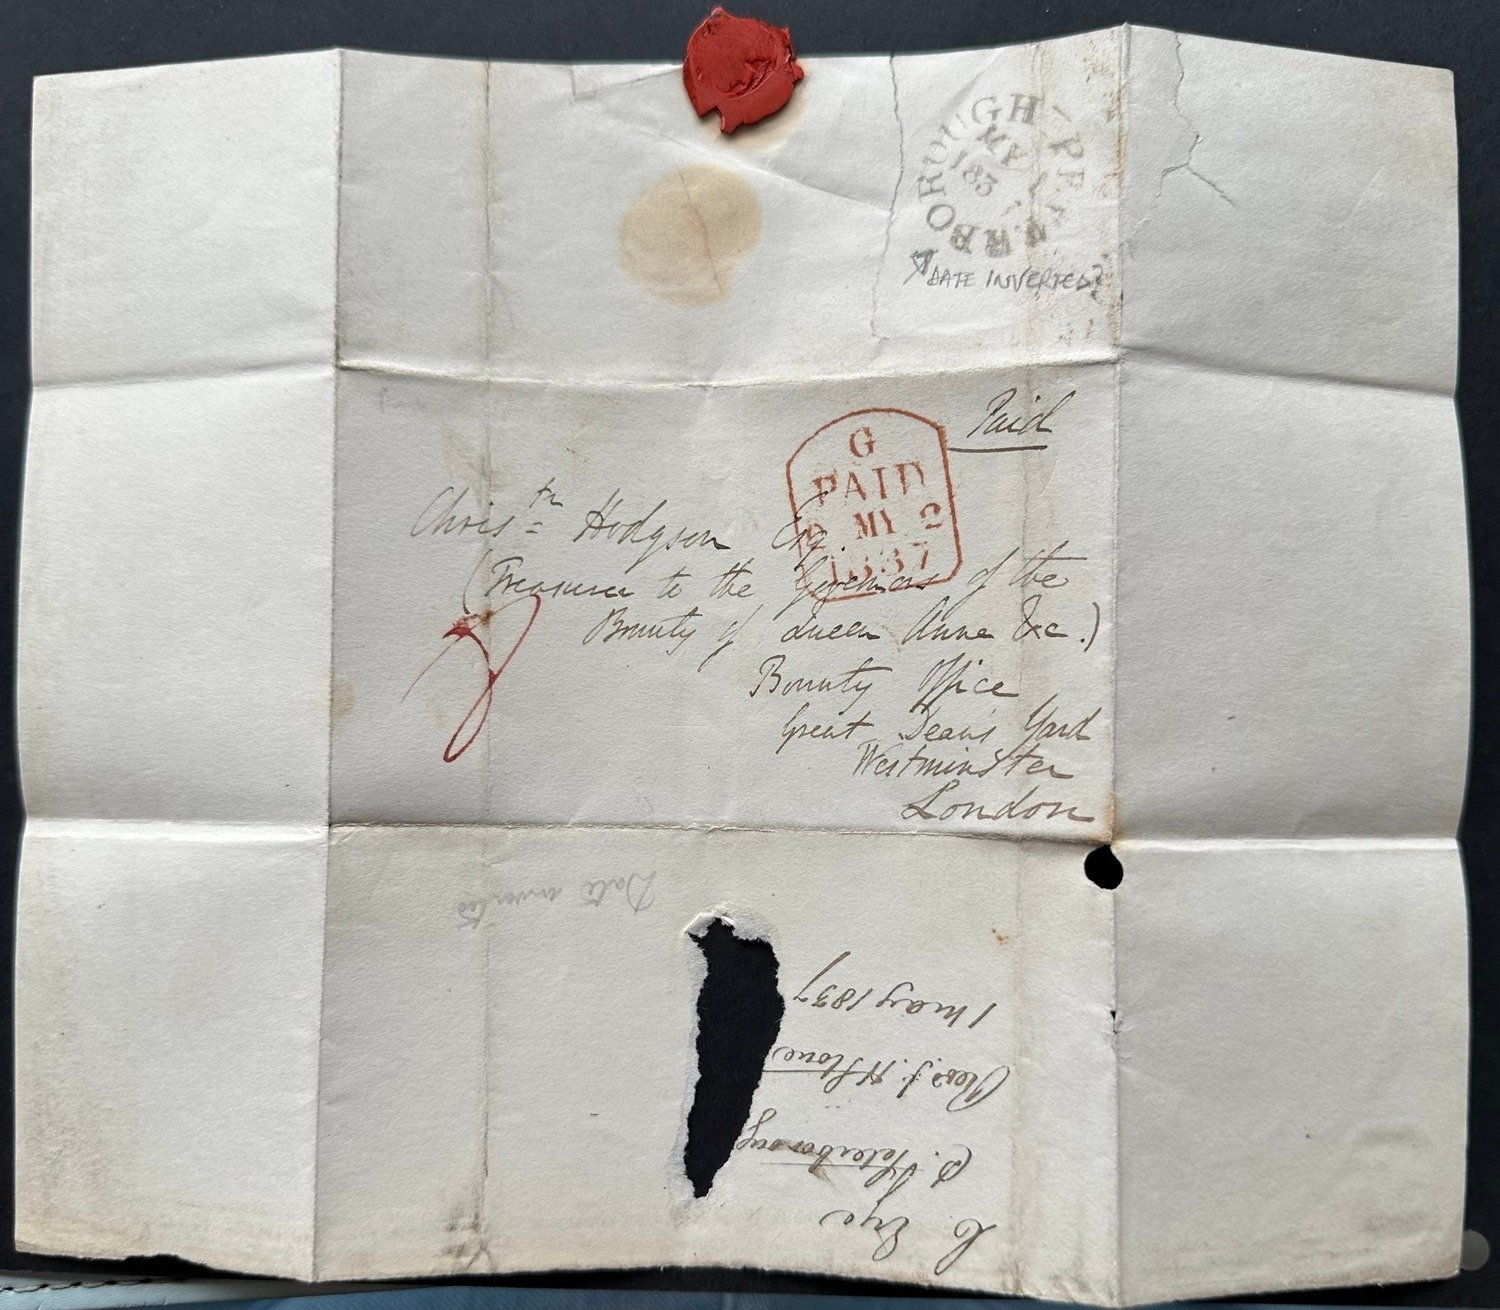 PETERBOROUGH
MY
183
DATE INVERTED?
Paid
G
PAID
2 MY 2
1837
Chris.tr Hodgson Esq.
(Treasurer to the Governors of the
Bounty of Queen Anne &c.)
Bounty Office
Great Dean's Yard
Westminster
London
8
Date inverted
C. Eye
D. Peterboroug
Rev.d J. H. Stone
1 May 1837